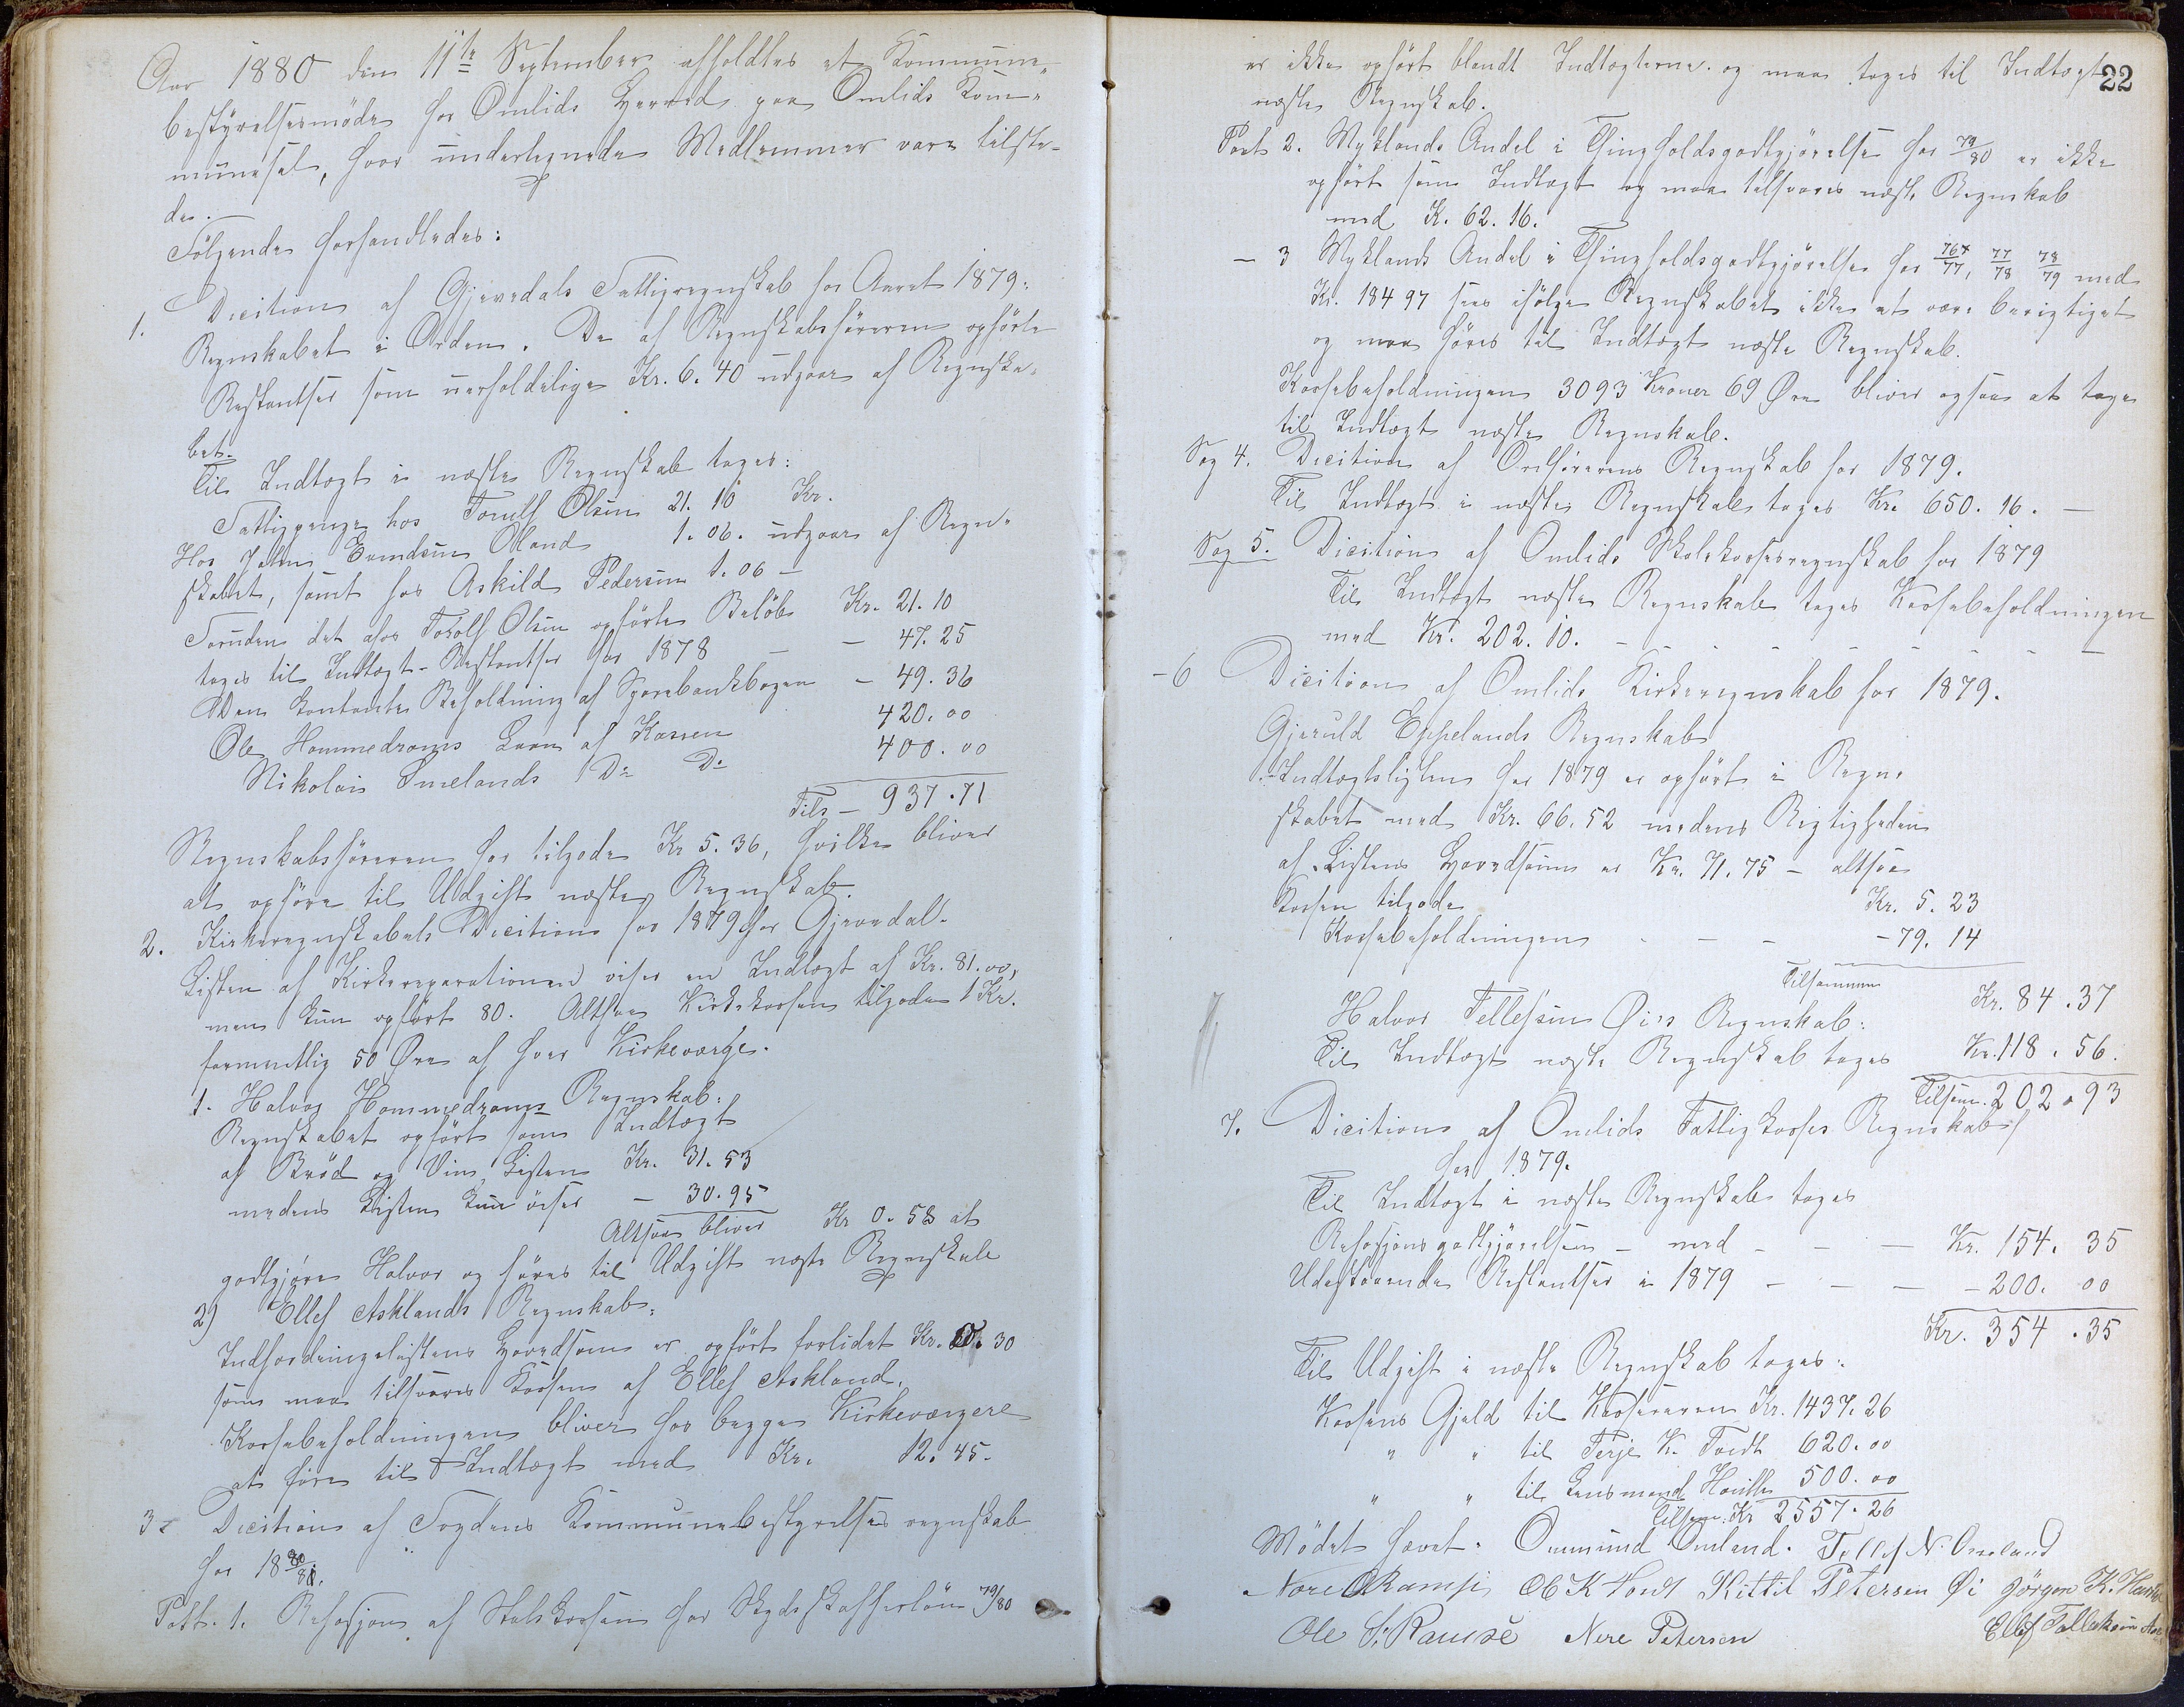 Aar 1880 den 11te September afholdtes et Kommune-
bestyrelsesmøde for Omlids Herred paa Omlids Kom-
munesal, hvor undertegnede Medlemmer vare tilste-
de.
Følgende forhandledes:
1. Dicition af Gjøvedals Fattigregnskab for Aaret 1879:
Regnskabet i Orden. De af Regnskabsføreren opførte
Restantser som uerholdelige Kr. 6. 40 udgaar af Regnska-
bet.
Til Indtægt i næste Regnskab tages:
Fattigpenge hos Torulf Olsen 21. 10 Kr.
Hos Jalm Evindsen Oland 1. 06. udgaar af Regn-
skabet, samt hos Askild Pedersen 1. 06 —
Foruden det hos Torolf Olsen opførte Beløb Kr. 21. 10
tages til Indtægt Restantser for 1878 — — 47. 25
Den kontante Beholdning af Sparebankbogen — 49. 36
Ole Hommedrams Laan af Kassen 420. 00
Nikolai Smelands Do Do 400. 00
Tils — 937. 71
Regnskabsføreren har tilgode Kr 5. 36, hvilke bliver
at opføre til Udgift næste Regnskab.
2. Kirkeregnskabets Dicition for 1879 for Gjøvedal.
Listen af Kirkereparationen viser en Indtægt af Kr. 81. 00,
men kun opført 80. Altsaa Kirkekassen tilgode 1 Kr.
formentlig 50 Øre af hver Kirkeværge.
1. Halvor Hommedrams Regnskab:
Regnskabet opført som Indtægt
af Brød og Vin Listen Kr. 31. 53
medens Listen kun viser — 30. 95
Altsaa bliver Kr 0. 58 at
godtgjøre Halvor og føres til Udgift næste Regnskab
2) Ellef Asklands Regnskab:
Indfordringslistens Hovedsum er opført forlidet Kr. 30
som maa tilsvares Kassen af Ellef Askland.
Kassebeholdningen bliver for begge Kirkeværgere
at føre til Indtægt med Kr. 12. 45.
3. Dicition af Fogdens Kommunebestyrelses regnskab
for 18 80/81.
Post. 1. Refusjon af Statskassen for Skydsskafferløn 79/80
22
er ikke opført blandt Indtægterne og maa tages til Indtægt
næste Regnskab.
Post 2. Myklands Andel i Thingholdsgodtgjørelse for 79/80 er ikke
opført som Indtægt og maa tilsvares næste Regnskab
med K. 62. 16.
— 3 Myklands Andel i Thingholdsgodtgjørelse for 76/77, 77/78 78/79 med
Kr. 184 97 sees ifølge Regnskabet ikke at være berigtiget
og maa føres til Indtægt næste Regnskab.
Kassebeholdningen 3093 Kroner 69 Øre bliver ogsaa at tage
til Indtægt næste Regnskab.
Sag 4. Dicition af Ordførerens Regnskab for 1879.
Til Indtægt i næste Regnskab tages Kr. 650. 16. —
Sag 5. Dicition af Omlids Skolekasseregnskab for 1879
Til Indtægt næste Regnskab tages Kassebeholdningen
med Kr. 202. 10. —
— 6 Dicition af Omlids Kirkeregnskab for 1879.
Gjeruld Eppelands Regnskab
Indtægtslisten for 1879 er opført i Regn-
skabet med Kr. 66. 52 medens Rigtigheden
af Listens Hovedsum er Kr. 71. 75 — altsaa
Kassen tilgode Kr. 5. 23
Kassebeholdningen — — — 79. 14
Tilsammen Kr. 84. 37
Halvor Tellefsen Øis Regnskab:
Til Indtægt næste Regnskab tages Kr. 118. 56.
Tilsam. 202. 93
7. Dicition af Omlids Fattigkasses Regnskab
for 1879.
Til Indtægt i næste Regnskab tages
Refusjonsgodtgjørelsen — med — — Kr. 154. 35
Udestaaende Restantser i 1879 — — — 200. 00
Kr. 354. 35
Til Udgift i næste Regnskab tages:
Kassens Gjæld til Kassereren Kr. 1437. 26
" " til Terje K. Tvedt 620. 00
" " til Lensmand 500. 00
Tilsam. Kr 2557. 26
Mødet hævet. Ommund Omland. Tellef N. Omland
O K Kittil Petersen Øi Jörgen K.
Ole S. Ramse Nere Petersen Ellef Tellefsen